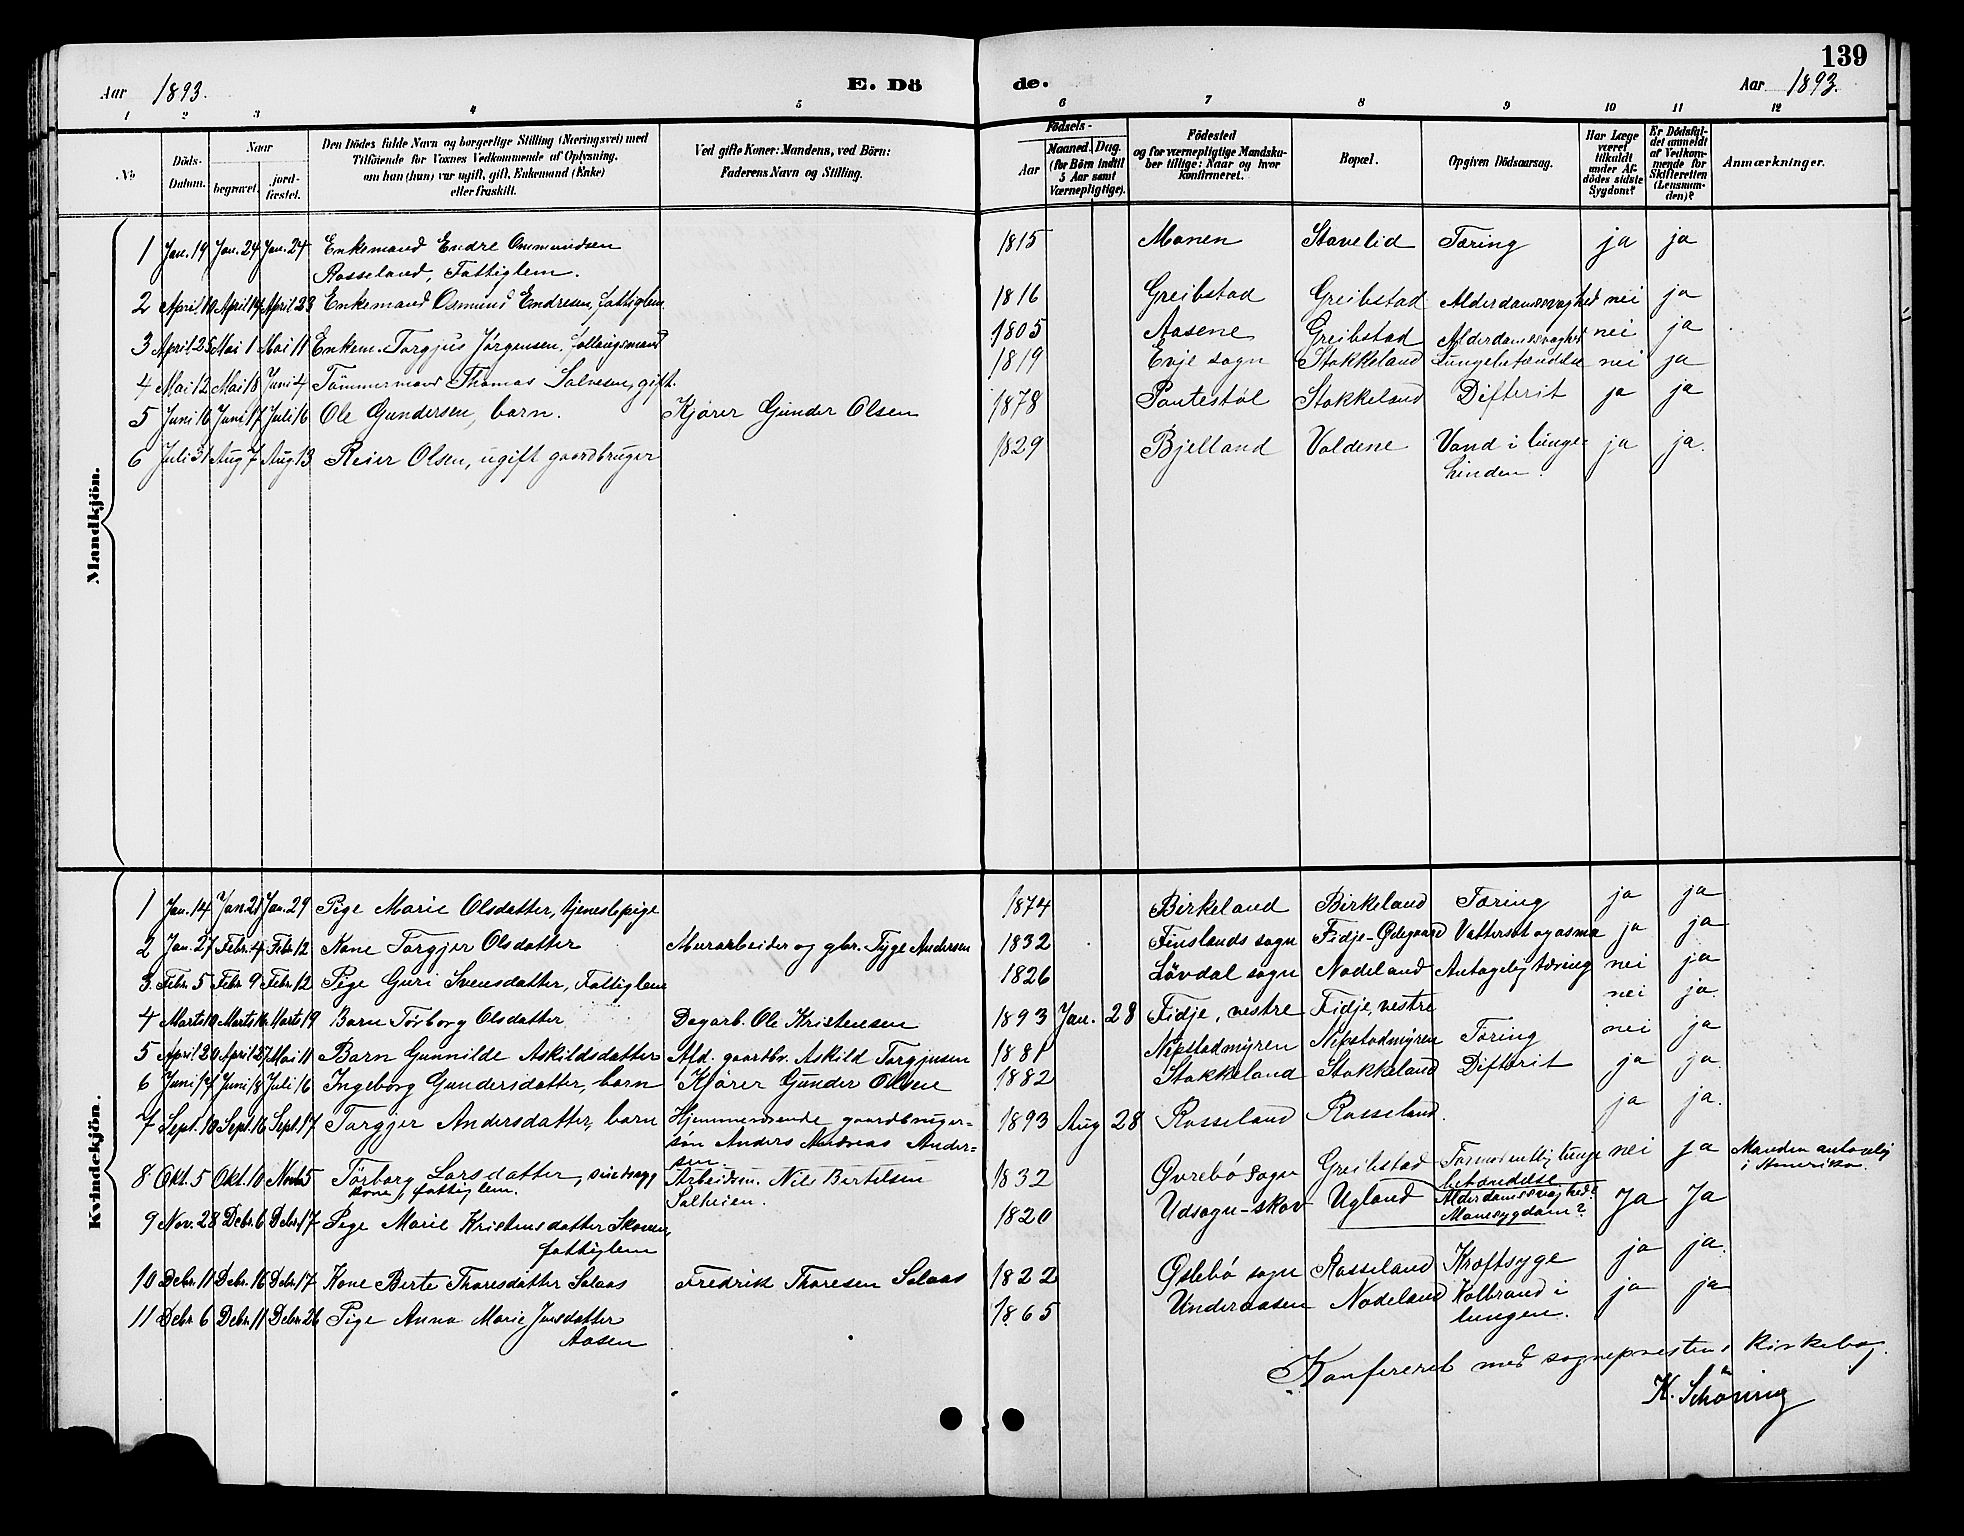 139
Aar 1893. E. Dö de. Aar 1893.
1 2 3 4 5 6 7 8 9 10 11 12
No
Döds-Datum.
Naar
begravet.
jord-fæstet.
Den Dödes fulde Navn og borgerlige Stilling (Næringsvei) med
Tilföiende for Voxnes Vedkommende af Oplysning,
om han (hun) var ugift, gift, Enkemand (Enke)
eller fraskilt.
Ved gifte Koner: Mandens, ved Börn:
Faderens Navn og Stilling.
Födsels-
Aar
Maaned. Dag.
(for Börn indtil
5 Aar samt
Værnepligtige).
Födested
og for værnepligtige Mandska-
ber tillige: Naar og hvor
konfirmeret.
Bopæl.
Opgiven Dödsaarsag.
Har Læge
været
tilkaldt
under Af-
dödes sidste
Sygdom?
Er Dödsfal-
det anmeldt
af Vedkom-
mende for
Skifteretten
(Lensman-
den)?
Anmærkninger.
Mandkjön.
1 Jan. 19 Jan. 24 Jan. 24 Enkemand Endre Ommundsen 1815 Monen Stavelid Tæring ja ja
Rosseland, Fattiglem.
2 April 10 April 14 April 23 Enkemand Osmund Endresen, fattiglem 1816 Greibstad Greibstad Alderdomssvaghed nei ja
3 April 25 Mai 1 Mai 11 Enkem. Torgjus Jörgensen, follaugsmand 1805 Aasene Greibstad Alderdomssvaghed nei ja
4 Mai 12 Mai 18 Juni 4 Tömmermand Thomas Salvesen, gift. 1819 Evje sogn Stokkeland Lungebetændelse nei ja
5 Juni 10 Juni 17 Juli 16 Ole Gundersen, barn. Kjörer Gunder Olsen 1878 Pontestöl Stokkeland Difterit ja ja
6 Juli 31 Aug 7 Aug 13 Reier Olsen, ugift gaardbruger 1829 Bjelland Voldene Vand i lunge- ja ja.
hinden.
Kvindekjön.
1 Jan. 14 Jan 21 Jan. 29 Pige Marie Olsdatter, tjenestepige 1874 Birkeland Birkeland Tæring ja ja
2 Jan. 27 Febr. 4 Febr 12 Kone Torgjer Olsdatter Murarbeider og gbr. Tyge Andersen 1832 Finslands sogn Fidje-Ødegaard Vattersot og asma ja ja
3. Febr. 5 Febr. 9 Febr. 12 Pige Guri Svensdatter, Fattiglem 1826 Lövdal sogn Nodeland Antagelig tæring nei ja
4 Marts 10 Marts 16 Marts 19 Barn Törborg Olsdatter Dagarb. Ole Kristensen 1893 Jan. 28 Fidje, vestre Fidje, vestre nei ja.
5 April 20 April 27 Mai 11 Barn Gunnilde Askildsdatter Afd. gaardbr. Askild Torgjusen 1881 Nepstadmyren Nepstadmyren Tæring nei ja
6 Juni 17 Juni 18 Juli 16 Ingeborg Gundersdatter, barn Kjörer Gunder Olsen 1882 Stokkeland Stokkeland Difterit ja ja.
7 Sept. 10 Sept. 16 Sept. 17 Torgjer Andersdatter, barn Hjemmeværende gaardbruger- 1893 Aug 28 Rosseland Rosseland. ja ja.
sön Anders Andreas Ander-
sen.
8 Okt. 5 Okt. 10 Novb 5 Törborg Larsdatter, sindssyg Arbeidsm. Nils Bertelsen 1832 Øvrebö sogn Greibstad Formodentlig lunge nei ja Manden antagelig
kone, fattiglem. Solheien. betændelse i Amerika.
9 Nov. 28 Debr. 6 Debr. 17 Pige Marie Kristensdatter Skoven, 1820 Udsogn-skov Ugland Alderdomssvaghed? Ja Ja
fattiglem Mavesygdom?
10 Debr. 11 Debr. 16 Debr. 17 Kone Berte Thoresdatter Solaas Fredrik Thoresen Solaas 1822 Øslebö sogn Rosseland Kræftsyge ja ja.
11 Debr. 6 Debr. 11 Debr. 26 Pige Anna Marie Jonsdatter 1865 Underaasen Nodeland Kolbrand i ja ja
Aasen lungen.
Konfereret med sognepræstens kirkebog.
K. Schöning